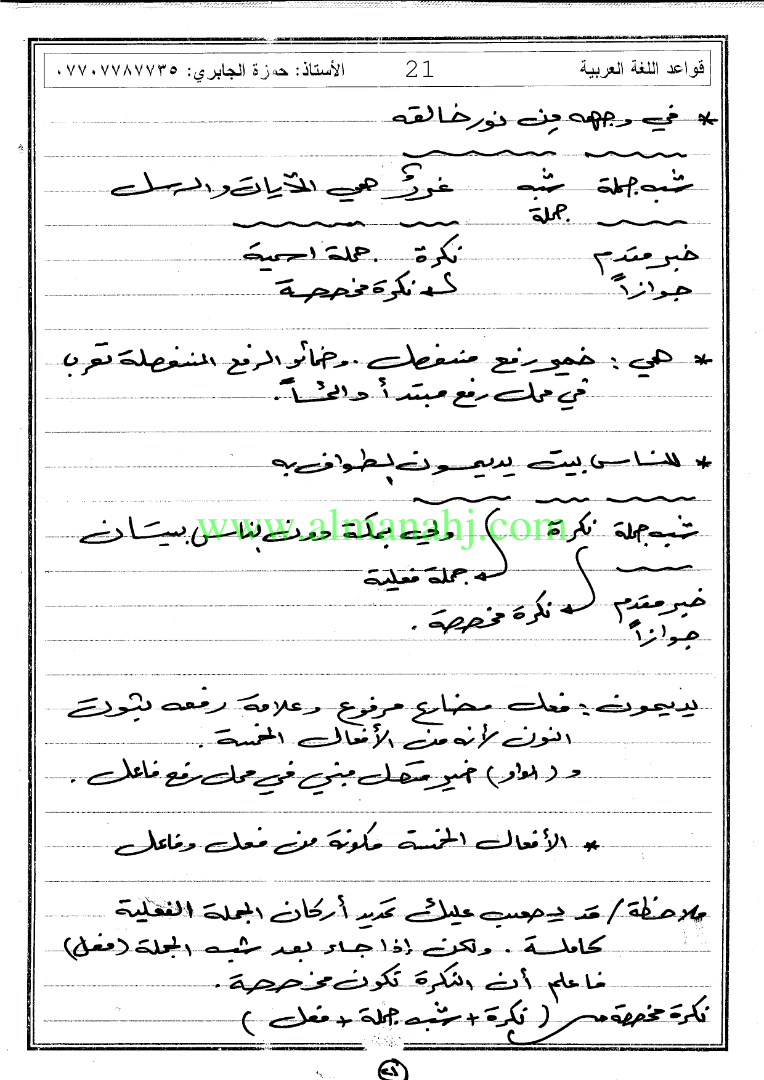 قواعد اللغة العربية 21 الأستاذ: حمزة الجابري: ٠٧٧٠٧٧٨٧٧٣٥
* في وجهه من نور خالقه
شبه جملة شبه جملة غررٌ هي الآيات والرسل
خبر مقدم نكرة جملة اسمية
جوازاً نكرة مخصصة
* هي : ضمير رفع منفصل . وضمائر الرفع المنفصلة تعرب
في محل رفع مبتدأ دائماً .
* للناس بيت يديمون الطواف به
شبه جملة نكرة ولي بمكة دون الناس بيتان
www.almanahj.com
جملة فعلية
خبر مقدم نكرة مخصصة .
جوازاً
يديمون : فعل مضارع مرفوع وعلامة رفعه ثبوت
النون لأنه من الأفعال الخمسة .
و (الواو) ضمير متصل مبني في محل رفع فاعل .
* الأفعال الخمسة مكونة من فعل وفاعل
ملاحظة / قد يصعب عليك تحديد أركان الجملة الفعلية
كاملة . ولكن إذا جاء بعد شبه الجملة (فعل)
فاعلم أن النكرة تكون مخصصة .
نكرة مخصصة ( نكرة + شبه جملة + فعل )
٢١